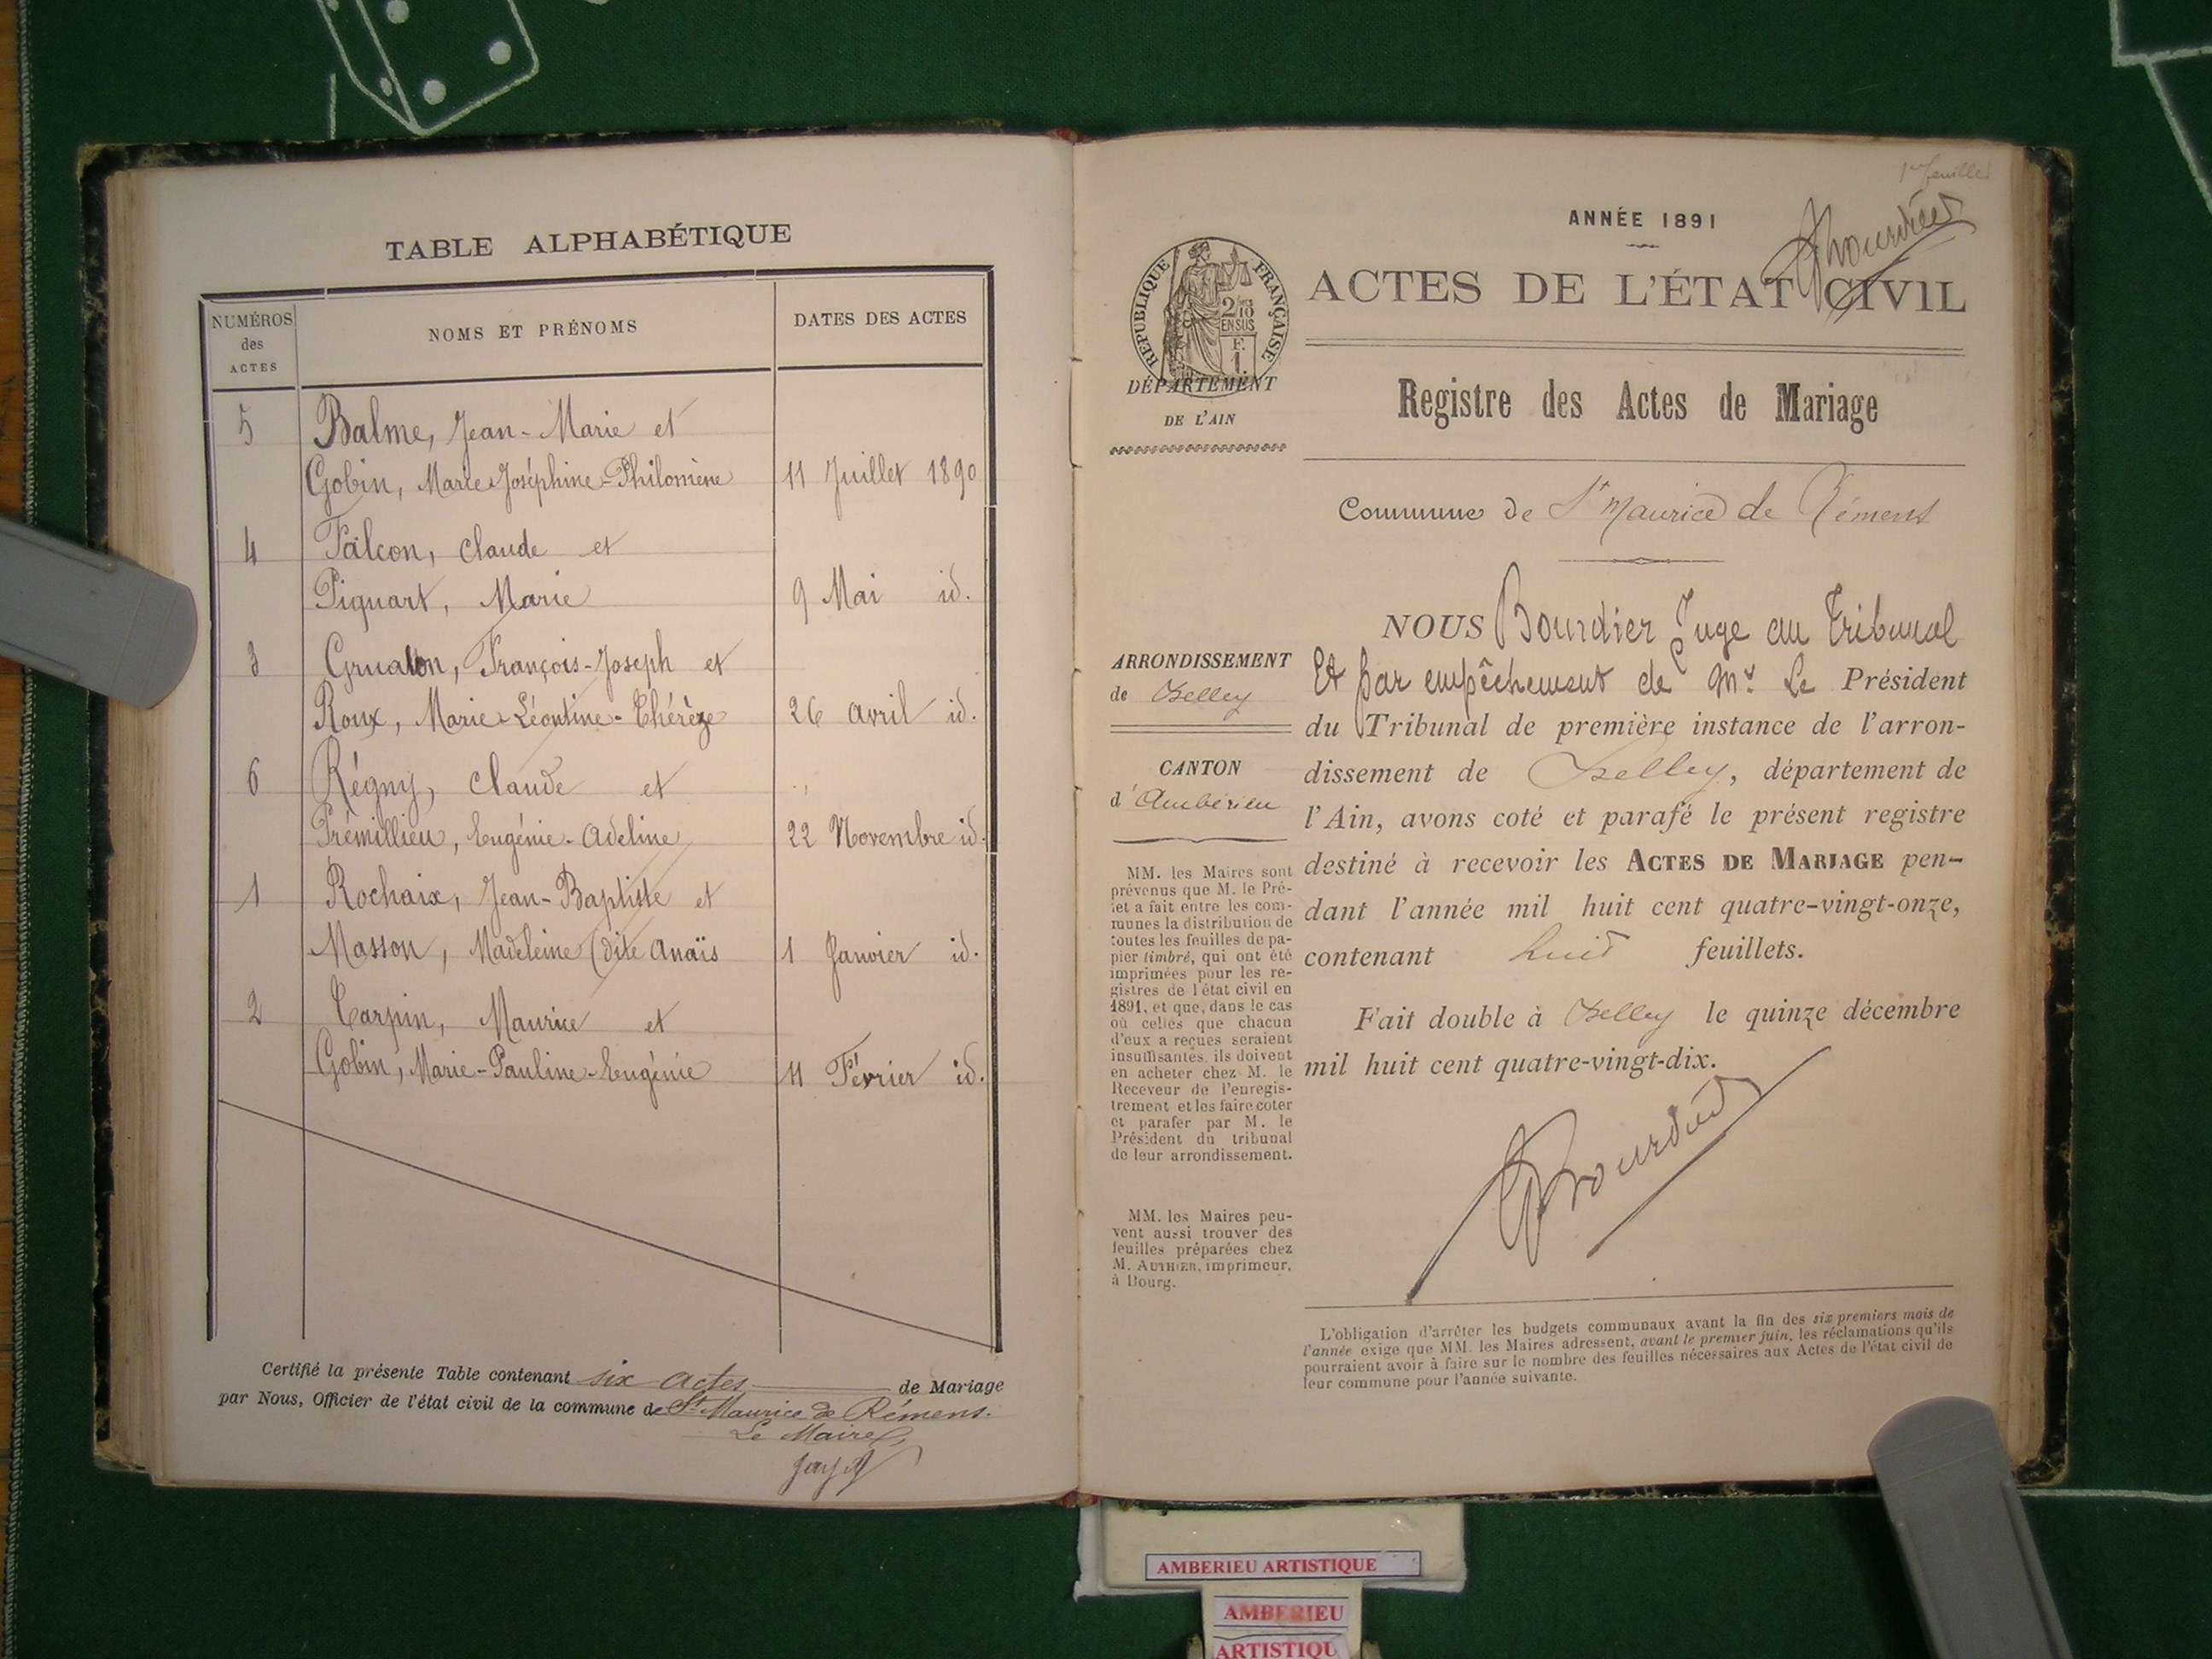 TABLE ALPHABÉTIQUE
NUMÉROS
des
ACTES
NOMS ET PRÉNOMS
DATES DES ACTES
5 Balme, Jean-Marie et
Gobin, Marie-Joséphine-Philomène 11 Juillet 1890
4 Falcon, Claude et
Piquart, Marie 9 Mai id.
3 François-Joseph et
Roux, Marie-Léontine-Thérèze 26 avril id.
6 Régny, Claude et
Prémillieu, Eugénie-Adeline 22 Novembre id.
1 Rochaix, Jean-Baptiste et
Masson, Madeleine (dite Anaïs 1 Janvier id.
2 Carpin, Maurice et
Gobin, Marie-Pauline-Eugénie 11 Février id.
Certifié la présente Table contenant six actes de Mariage
par Nous, Officier de l'état civil de la commune de St Maurice de Rémens.
Le Maire,
1er feuillet
ANNÉE 1891
Bourdier
RÉPUBLIQUE FRANÇAISE
2/10
EN SUS
F.
1.
ACTES DE L'ÉTAT CIVIL
DÉPARTEMENT
DE L'AIN
Registre des Actes de Mariage
Commune de St Maurice de Rémens
ARRONDISSEMENT
de Belley
CANTON
d'Ambérieu
MM. les Maires sont
prévenus que M. le Pré-
fet a fait entre les com-
munes la distribution de
toutes les feuilles de pa-
pier timbré, qui ont été
imprimées pour les re-
gistres de l'état civil en
1891, et que, dans le cas
où celles que chacun
d'eux a reçues seraient
insuffisantes, ils doivent
en acheter chez M. le
Receveur de l'enregis-
trement et les faire coter
et parafer par M. le
Président du tribunal
de leur arrondissement.
MM. les Maires peu-
vent aussi trouver des
feuilles préparées chez
M. AUTHIER, imprimeur,
à Bourg.
NOUS Bourdier Juge au Tribunal
Et par empêchement de Mr. Le Président
du Tribunal de première instance de l'arron-
dissement de Belley, département de
l'Ain, avons coté et parafé le présent registre
destiné à recevoir les ACTES DE MARIAGE pen-
dant l'année mil huit cent quatre-vingt-onze,
contenant huit feuillets.
Fait double à Belley le quinze décembre
mil huit cent quatre-vingt-dix.
Bourdier
L'obligation d'arrêter les budgets communaux avant la fin des six premiers mois de
l'année exige que MM. les Maires adressent, avant le premier juin, les réclamations qu'ils
pourraient avoir à faire sur le nombre des feuilles nécessaires aux Actes de l'état civil de
leur commune pour l'année suivante.
AMBERIEU ARTISTIQUE
AMBERIEU
ARTISTIQU